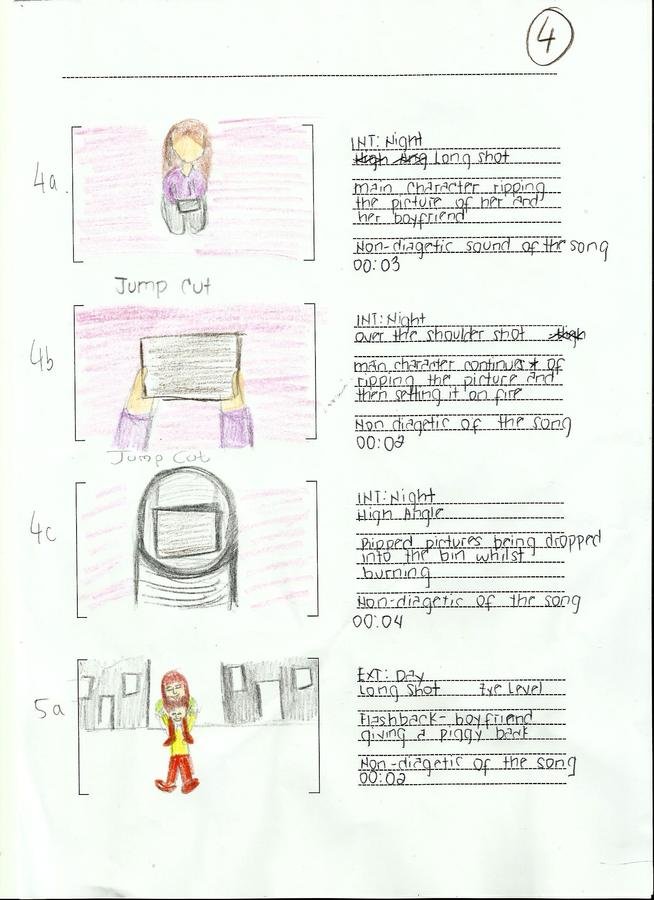 4
4a.
INT: Night
Long shot
main character ripping
the picture of her and
her boyfriend
Non-diagetic sound of the song
00:03
Jump Cut
4b
INT: Night
over the shoulder shot
main character continues of
ripping the picture and
then setting it on fire
Non diagetic of the song
00:02
Jump Cut
4c
INT: Night
High Angle
Ripped pictures being dropped
into the bin whilst
burning
Non-diagetic of the song
00:04
5a
EXT: Day
Long Shot Eye Level
Flashback- boyfriend
giving a piggy back
Non-diagetic of the song
00:02